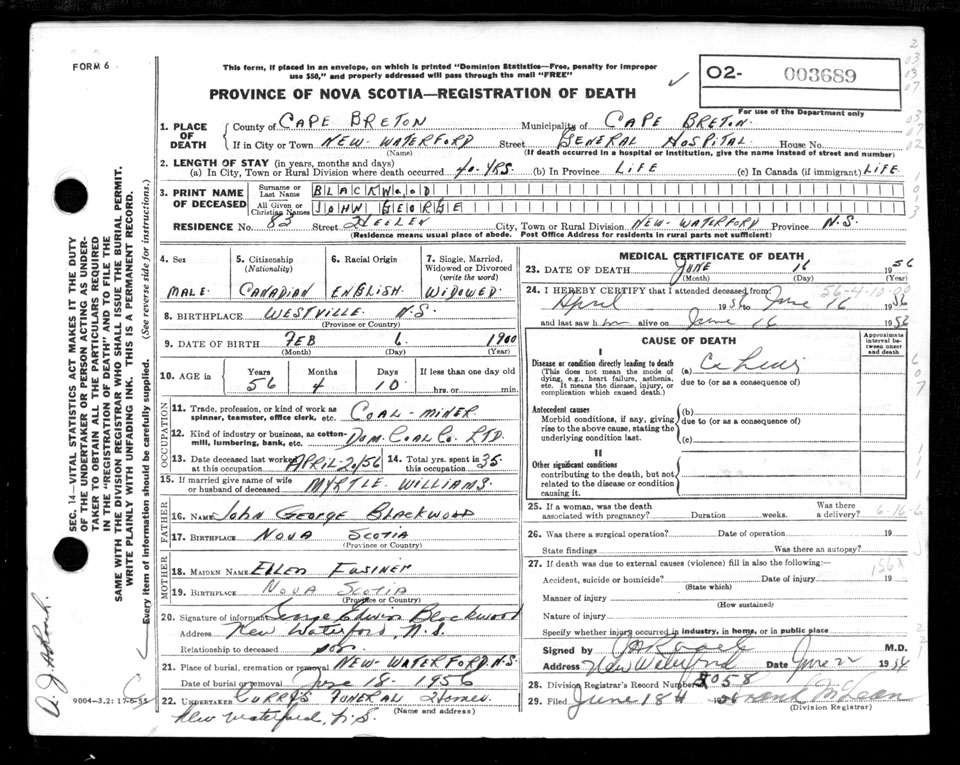 FORM 6
This form, if placed in an envelope, on which is printed "Dominion Statistics—Free, penalty for improper
use $50," and properly addressed will pass through the mail "FREE"
✓
O2- 003689
PROVINCE OF NOVA SCOTIA—REGISTRATION OF DEATH
For use of the Department only
1. PLACE OF DEATH
County of CAPE BRETON Municipality of CAPE BRETON
If in City or Town NEW WATERFORD Street GENERAL HOSPITAL House No.
(Name) (If death occurred in a hospital or institution, give the name instead of street and number)
2. LENGTH OF STAY (in years, months and days)
(a) In City, Town or Rural Division where death occurred 40 YRS. (b) In Province LIFE (c) In Canada (if immigrant) LIFE
3. PRINT NAME OF DECEASED
Surname or Last Name BLACKWOOD
All Given or Christian Names JOHN GEORGE
RESIDENCE No. 83 Street City, Town or Rural Division NEW-WATERFORD Province N.S.
(Residence means usual place of abode. Post Office Address for residents in rural parts not sufficient)
4. Sex
MALE
5. Citizenship
(Nationality)
CANADIAN
6. Racial Origin
ENGLISH
7. Single, Married,
Widowed or Divorced
(write the word)
WIDOWED
8. BIRTHPLACE WESTVILLE N.S.
(Province or Country)
9. DATE OF BIRTH FEB 6 1900
(Month) (Day) (Year)
10. AGE in Years Months Days If less than one day
56 4 10 hrs. or min.
OCCUPATION
11. Trade, profession, or kind of work as
spinner, teamster, office clerk, etc. COAL-MINER
12. Kind of industry or business, as cotton-
mill, lumbering, bank, etc. DOM. COAL CO. LTD.
13. Date deceased last worked
at this occupation APRIL 20/56
14. Total yrs. spent in
this occupation 35
15. If married give name of wife
or husband of deceased MYRTLE WILLIAMS
FATHER
16. NAME John George Blackwood
17. BIRTHPLACE NOVA SCOTIA
(Province or Country)
MOTHER
18. MAIDEN NAME ELLEN
19. BIRTHPLACE NOVA SCOTIA
(Province or Country)
20. Signature of informant George Edwin Blackwood
Address New Waterford, N.S.
Relationship to deceased son
21. Place of burial, cremation or removal NEW-WATERFORD N.S.
Date of burial or removal June 18- 1956
22. UNDERTAKER CURRY'S FUNERAL Home
(Name and address)
New Waterford, N.S.
MEDICAL CERTIFICATE OF DEATH
23. DATE OF DEATH JUNE 16 1956
(Month) (Day) (Year)
24. I HEREBY CERTIFY that I attended deceased from
April 1956 to June 16 1956
and last saw him alive on June 16 1956
CAUSE OF DEATH
Approximate interval between onset and death
I
Disease or condition directly leading to death
(This does not mean the mode of
dying, e.g., heart failure, asthenia,
etc. It means the disease, injury, or
complication which caused death.)
(a)
due to (or as a consequence of)
Antecedent causes
Morbid conditions, if any, giving
rise to the above cause, stating the
underlying condition last.
(b)
due to (or as a consequence of)
(c)
II
Other significant conditions
contributing to the death, but not
related to the disease or condition
causing it.
25. If a woman, was the death
associated with pregnancy? Duration weeks. Was there
a delivery?
26. Was there a surgical operation? Date of operation 19
State findings Was there an autopsy?
27. If death was due to external causes (violence) fill in also the following:—
Accident, suicide or homicide? Date of injury 19
(State which)
Manner of injury
(How sustained)
Nature of injury
Specify whether injury occurred in industry, in home, or in public place
Signed by M.D.
Address New Waterford Date June
28. Division Registrar's Record Number 058
29. Filed June 18 1956 Frank McLean
(Division Registrar)
SEC. 14—VITAL STATISTICS ACT MAKES IT THE DUTY
OF THE UNDERTAKER OR PERSON ACTING AS UNDER-
TAKER TO OBTAIN ALL THE PARTICULARS REQUIRED
IN THE "REGISTRATION OF DEATH" AND TO FILE THE
SAME WITH THE DIVISION REGISTRAR WHO SHALL ISSUE THE BURIAL PERMIT.
WRITE PLAINLY WITH UNFADING INK. THIS IS A PERMANENT RECORD.
Every item of information should be carefully supplied. (See reverse side for instructions.)
9004-3.2: 17-6-55